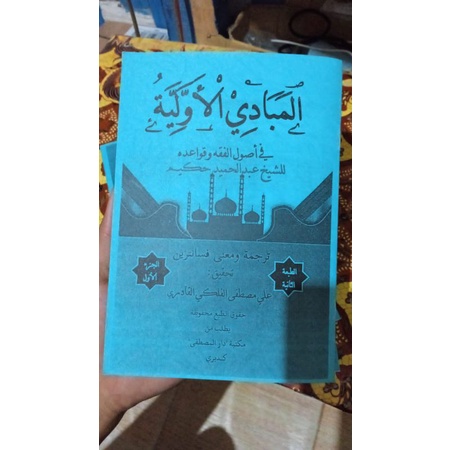 المَبَادِيْ الْأَوَّلِيَّةُ
في أصول الفقه وقواعده
للشيخ عبد الحميد حكيم
ترجمة ومعنى فسانترين
تحقيق :
علي مصطفى الفلكي القادري
الجزء الأول
الطبعة الثانية
حقوق الطبع محفوظة
يطلب من
مكتبة دار المصطفى
كديري